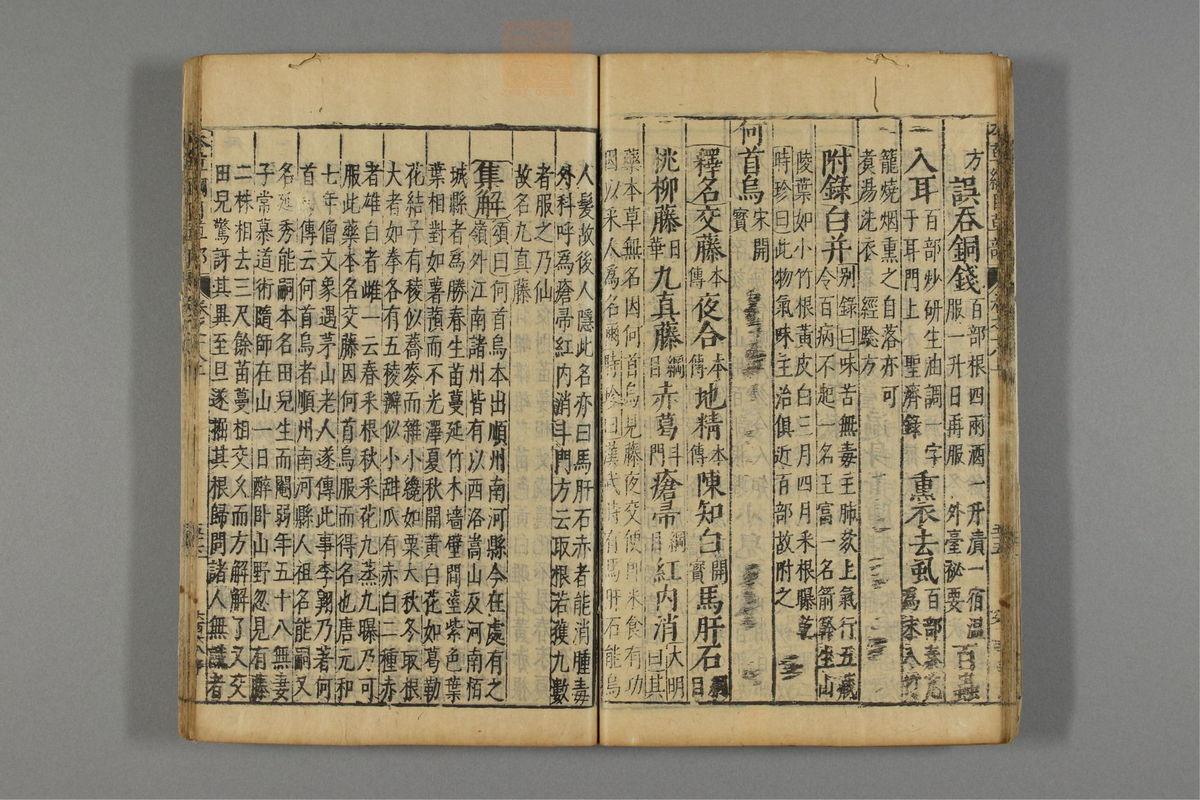 方 誤吞銅錢 百部根四兩酒一升漬一宿溫服一升日再服 外臺祕要 百蟲
入耳 百部炒研生油調一字于耳門上 聖濟錄 熏衣去虱 百部秦艽爲末入竹
籠燒烟熏之自落亦可煑湯洗衣 經驗方
附錄白并 別錄曰味苦無毒主肺欬上氣行五藏令百病不起一名王富一名箭簳生山
陵葉如小竹根黃皮白三月四月采根曝乾
時珍曰此物氣味主治俱近百部故附之
何首烏 宋開寶
釋名交藤 本傳 夜合 本傳 地精 本傳 陳知白 開寶 馬肝石 綱目
桃柳藤 日華 九真藤 綱目 赤葛 斗門 瘡帚 綱目 紅內消 大明曰其
藥本草無名因何首烏見藤夜交便即采食有功
因以采人爲名爾時珍曰漢武時有馬肝石能烏
人髮故後人隱此名亦曰馬肝石赤者能消腫毒
外科呼爲瘡帚紅內消斗門方云取根若獲九數
者服之乃仙
故名九真藤
集解 頌曰何首烏本出順州南河縣今在處有之
嶺外江南諸州皆有以西洛嵩山及河南栢
城縣者爲勝春生苗蔓延竹木墻壁間莖紫色葉
葉相對如薯蕷而不光澤夏秋開黃白花如葛勒
花結子有稜似蕎麥而雜小纔如粟大秋冬取根
大者如拳各有五稜瓣似小甜瓜有赤白二種赤
者雄白者雌一云春采根秋采花九蒸九曝乃可
服此藥本名交藤因何首烏服而得名也唐元和
七年僧文象遇茅山老人遂傳此事李翺乃著何
首烏傳云何首烏者順州南河縣人祖名能嗣父
名延秀能嗣本名田兒生而閹弱年五十八無妻
子常慕道術隨師在山一日醉卧山野忽見有藤
二株相去三尺餘苗蔓相交久而方解解了又交
田兒驚訝其異至旦遂掘其根歸問諸人無識者